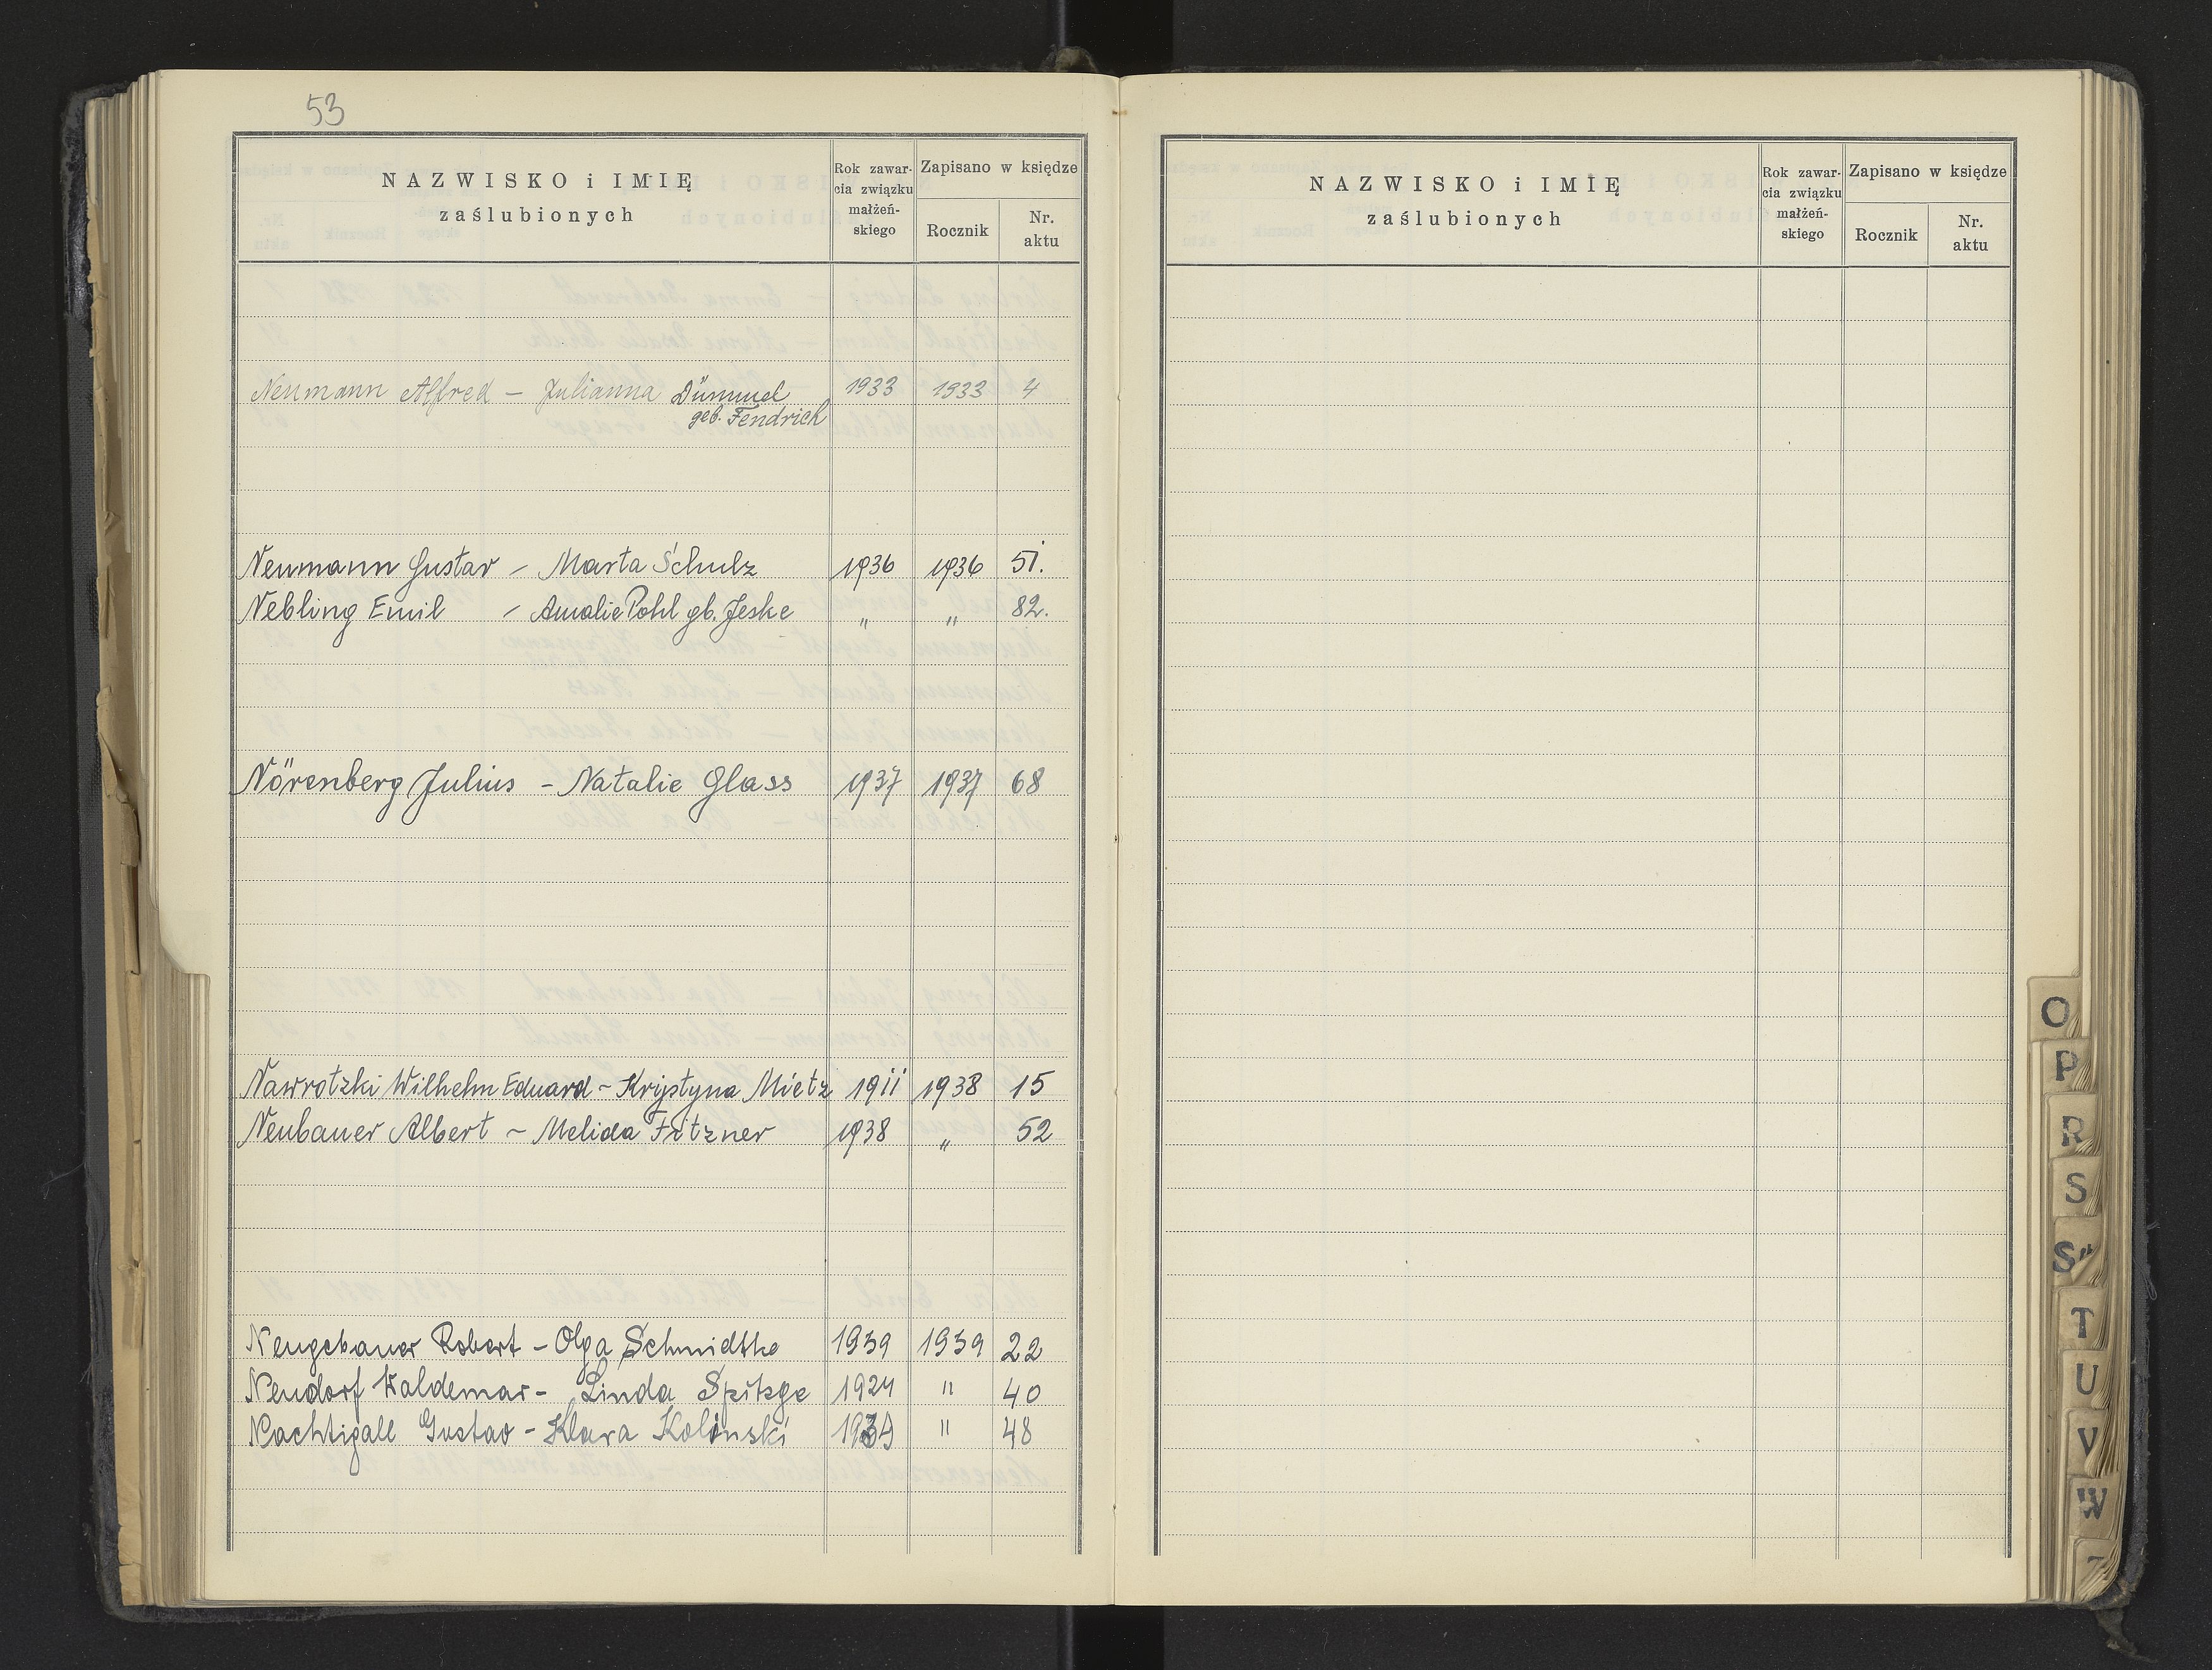 53
NAZWISKO i IMIĘ
zaślubionych
Rok zawar-
cia związku
małżeń-
skiego
Zapisano w księdze
Rocznik
Nr.
aktu
Neumann Alfred – Julianna Dümmel 1933 1933 4
geb. Fendrich
Neumann Gustav – Marta Schulz 1936 1936 51.
Nebling Emil – Amalie Pohl gb. Jeske " " 82.
Nörenberg Julius – Natalie Glass 1937 1937 68
Nawrotzki Wilhelm Eduard – Krystyna Mietz 1911 1938 15
Neubauer Albert – Melida Fitzner 1938 " 52
Neugebauer Robert – Olga Schmidtke 1939 1939 22
Neudorf Waldemar – Linda Spitzge 1924 " 40
Nachtigall Gustav – Klara Kolinski " 48
NAZWISKO i IMIĘ
zaślubionych
Rok zawar-
cia związku
małżeń-
skiego
Zapisano w księdze
Rocznik
Nr.
aktu
O
P
R
S
S"
T
U
V
W